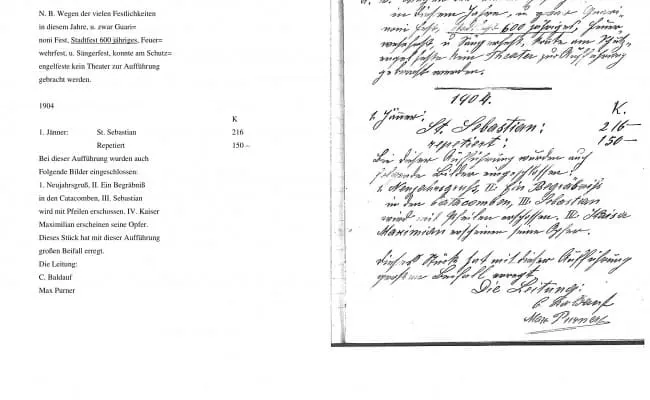 N. B. Wegen der vielen Festlichkeiten
in diesem Jahre, u. zwar Guari=
noni Fest, Stadtfest 600 jähriges, Feuer=
wehrfest, u. Sängerfest, konnte am Schutz=
engelfeste kein Theater zur Aufführung
gebracht werden.
1904
K
1. Jänner: St. Sebastian 216
Repetiert 150 –
Bei dieser Aufführung wurden auch
Folgende Bilder eingeschlossen:
1. Neujahrsgruß, II. Ein Begräbniß
in den Catacomben, III. Sebastian
wird mit Pfeilen erschossen. IV. Kaiser
Maximilian erscheinen seine Opfer.
Dieses Stück hat mit dieser Aufführung
großen Beifall erregt.
Die Leitung:
C. Baldauf
Max Purner
in diesem Jahre, u. zwar Guari=
noni Fest, Stadtfest 600 jähriges, Feuer=
wehrfest, u. Sängerfest, konnte am Schutz=
engelfeste kein Theater zur Aufführung
gebracht werden.
1904.
K.
1. Jänner: St. Sebastian: 216 –
repetiert: 150 –
Bei dieser Aufführung wurden auch
folgende Bilder eingeschlossen:
1. Neujahrsgruß, II. Ein Begräbniß
in den Catacomben, III. Sebastian
wird mit Pfeilen erschossen. IV. Kaiser
Maximian erscheinen seine Opfer.
Dieses Stück hat mit dieser Aufführung
großen Beifall erregt.
Die Leitung:
C. Baldauf
Max Purner